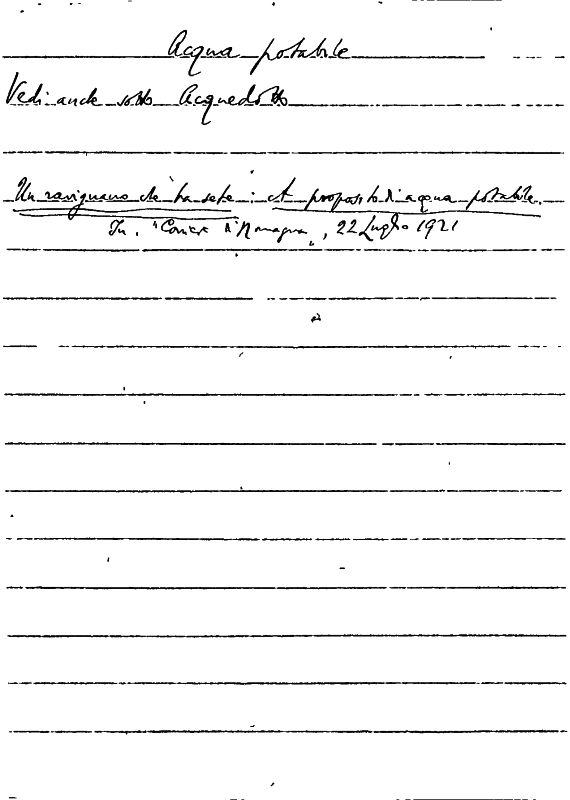 Acqua potabile
Vedi anche sotto Acquedotto
Un ravignano che ha sete : A proposito d'acqua potabile.
In, "Corriere di Romagna", 22 Luglio 1921